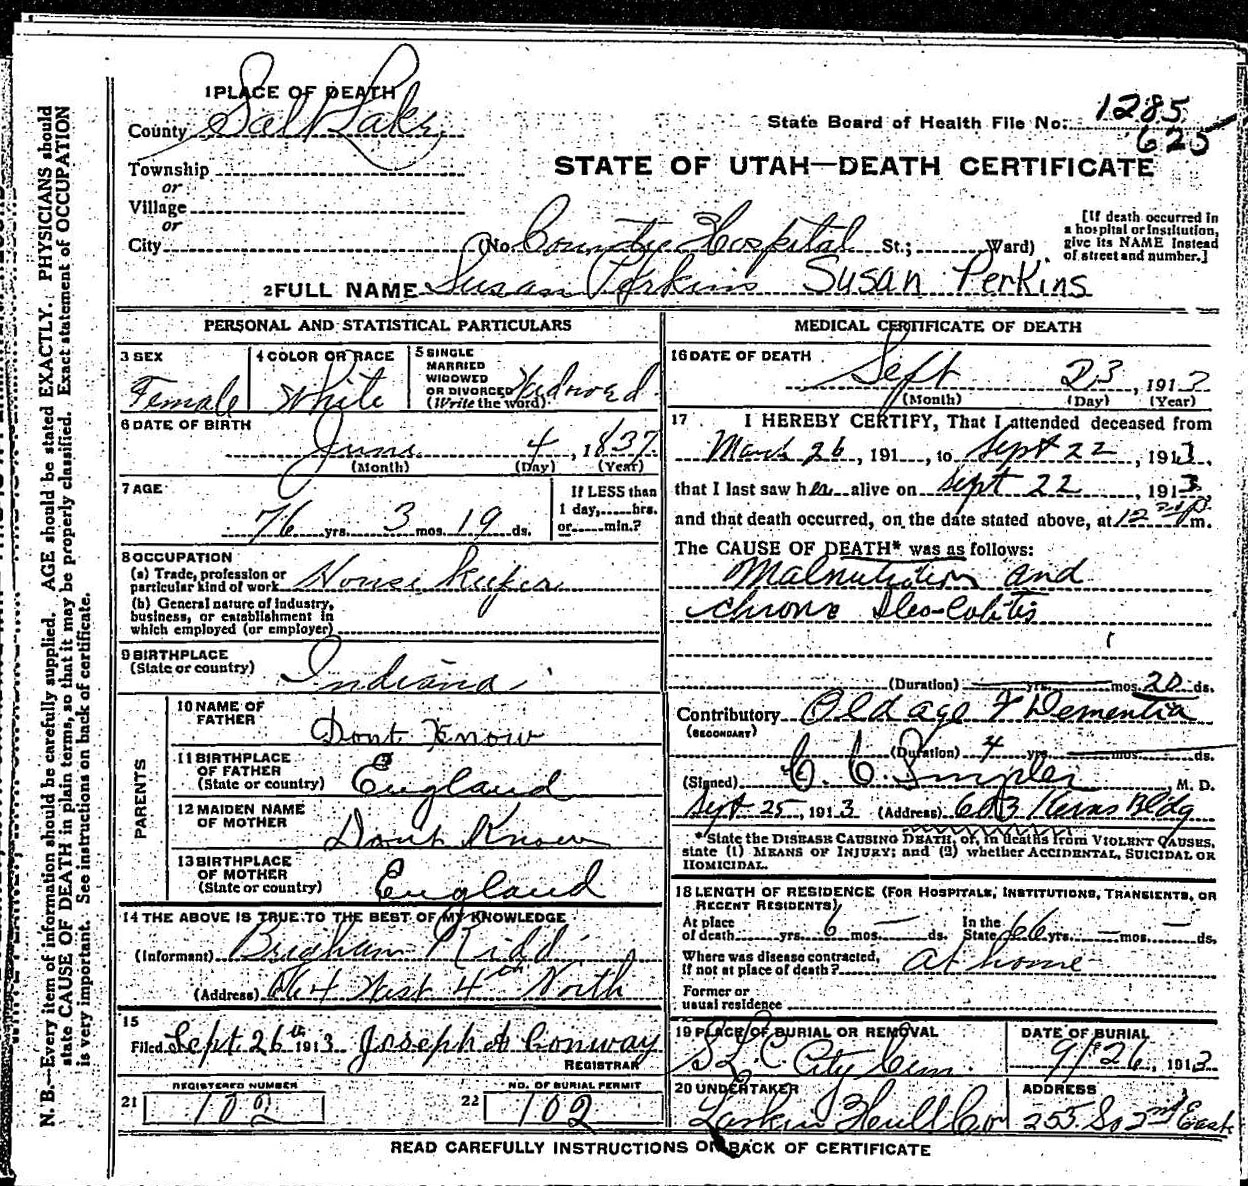 1 PLACE OF DEATH
County Salt Lake
State Board of Health File No. 1285
625
STATE OF UTAH—DEATH CERTIFICATE
Township
or
Village
or
City (No. County Hospital St.; Ward)
[If death occurred in a hospital or Institution, give its NAME instead of street and number.]
2 FULL NAME Susan Perkins Susan Perkins
PERSONAL AND STATISTICAL PARTICULARS
3 SEX Female
4 COLOR OR RACE White
5 SINGLE MARRIED WIDOWED OR DIVORCED (Write the word) Widowed
6 DATE OF BIRTH
June 4, 1837
(Month) (Day) (Year)
7 AGE
76 yrs. 3 mos. 19 ds.
If LESS than 1 day, hrs. or min.?
8 OCCUPATION
(a) Trade, profession or particular kind of work House Keeper
(b) General nature of Industry, business, or establishment in which employed (or employer)
9 BIRTHPLACE
(State or country) Indiana
PARENTS
10 NAME OF FATHER Dont Know
11 BIRTHPLACE OF FATHER (State or country) England
12 MAIDEN NAME OF MOTHER Dont Know
13 BIRTHPLACE OF MOTHER (State or country) England
14 THE ABOVE IS TRUE TO THE BEST OF MY KNOWLEDGE
(Informant) Brigham Kidd
(Address) 664 West 4th North
15
Filed Sept. 26th 1913 Joseph A Conway
REGISTRAR
REGISTERED NUMBER
21 102
NO. OF BURIAL PERMIT
22 102
MEDICAL CERTIFICATE OF DEATH
16 DATE OF DEATH
Sept 23, 1913
(Month) (Day) (Year)
17 I HEREBY CERTIFY, That I attended deceased from
March 26, 191 , to Sept 22, 1913,
that I last saw her alive on Sept 22 1913
and that death occurred, on the date stated above, at 12 P m.
The CAUSE OF DEATH* was as follows:
Malnutrition and
chronic Ileo-Colitis
(Duration) yrs. mos. 20 ds.
Contributory Old age & Dementia
(SECONDARY)
(Duration) 4 yrs. mos. ds.
(Signed) M. D.
Sept 25, 1913 (Address) 603 Kerns Bldg
*State the DISEASE CAUSING DEATH, or, in deaths from VIOLENT CAUSES,
state (1) MEANS OF INJURY; and (2) whether ACCIDENTAL, SUICIDAL OR
HOMICIDAL.
18 LENGTH OF RESIDENCE (FOR HOSPITALS, INSTITUTIONS, TRANSIENTS, OR
RECENT RESIDENTS)
At place of death yrs. 6 mos. — ds. In the State 66 yrs. — mos. — ds.
Where was disease contracted, if not at place of death? At home
Former or usual residence
19 PLACE OF BURIAL OR REMOVAL
S L C City Cem.
DATE OF BURIAL
9/26, 1913
20 UNDERTAKER
Larkin Hull Co
ADDRESS
255 So 2nd East
READ CAREFULLY INSTRUCTIONS ON BACK OF CERTIFICATE
N. B.—Every item of information should be carefully supplied. AGE should be stated EXACTLY. PHYSICIANS should
state CAUSE OF DEATH in plain terms, so that it may be properly classified. Exact statement of OCCUPATION
is very important. See instructions on back of certificate.